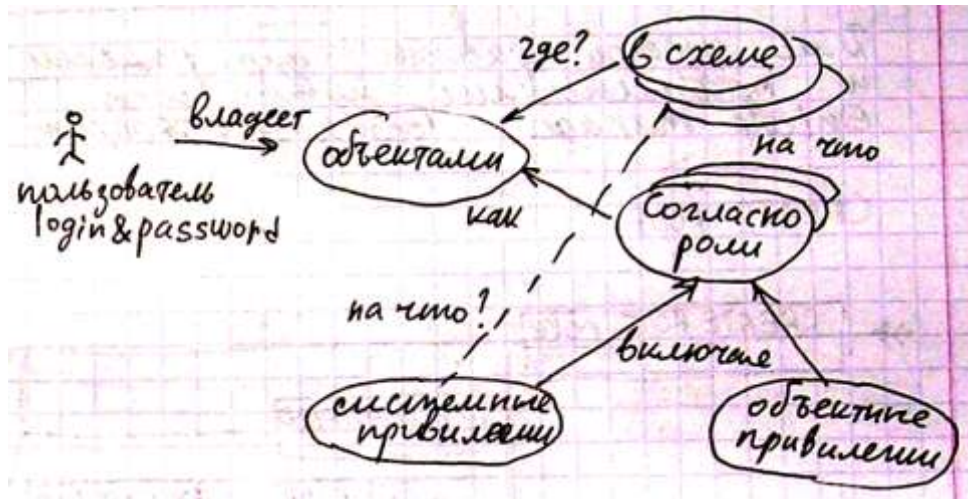 где?
в схеме
владеет
объектами
на что
пользователь
login&password
как
Согласно
роли
на что?
включая
системные
привилегии
объектные
привилегии